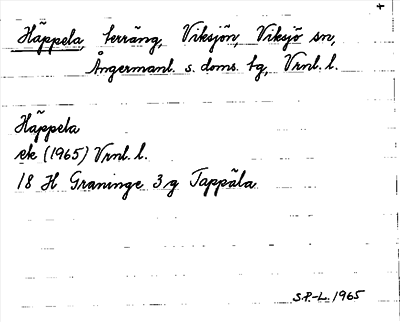 +
Häppela, terräng, Viksjön, Viksjö sn,
Ångermanl. s. doms. tg, Vrnl. l.
Häppela
ek (1965) Vrnl. l.
18 H Graninge 3g Tappäla
S.P.-L. 1965